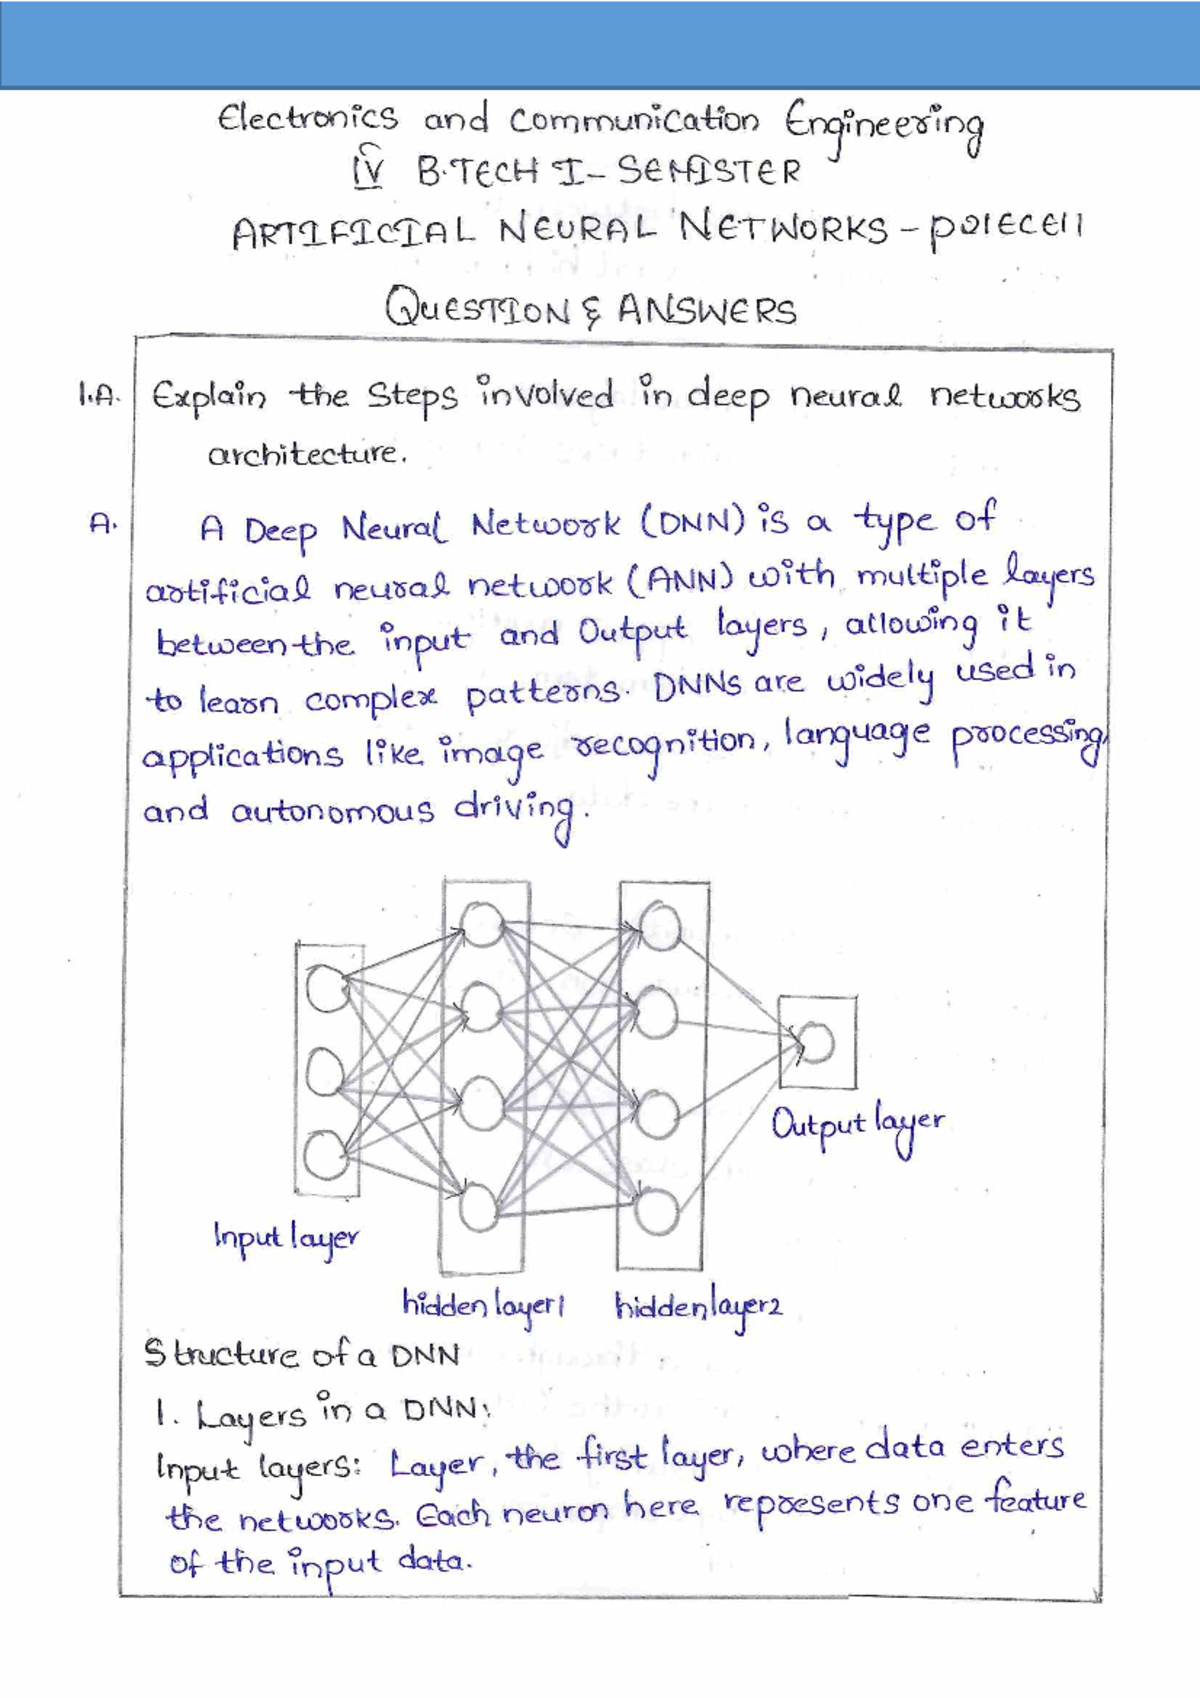 Electronics and Communication Engineering
IV B.TECH I- SEMISTER
ARTIFICIAL NEURAL NETWORKS - P21ECE11
QUESTION & ANSWERS
1.A. Explain the Steps involved in deep neural networks
architecture.
A. A Deep Neural Network (DNN) is a type of
artificial neural network (ANN) with multiple layers
between the input and Output layers, allowing it
to learn complex patterns. DNNs are widely used in
applications like image recognition, language processing,
and autonomous driving.
Output layer
Input layer
hidden layer1 hidden layer2
Structure of a DNN
1. Layers in a DNN:
Input layers: Layer, the first layer, where data enters
the networks. Each neuron here represents one feature
of the input data.